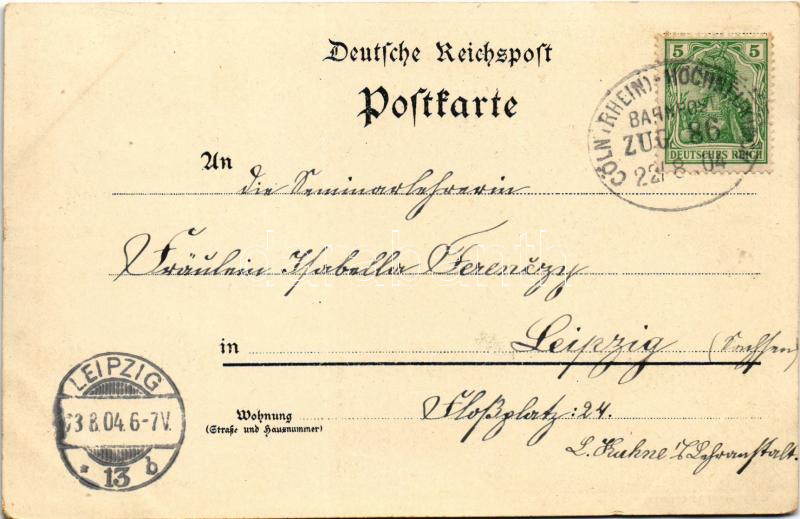 Deutsche Reichspost
Postkarte
5 5
DEUTSCHES REICH
CÖLN (RHEIN)-HOCHNEUKIRCH
BAHNPOST
ZUG 86
22/8 04
An die Seminarlehrerin
Fräulein Isabella Ferenczy
in Leipzig (Sachsen)
LEIPZIG
23 8.04.6-7V.
* 13 b
Wohnung Floßplatz: 24.
(Straße und Hausnummer)
L. Kuhne's Lehranstalt.